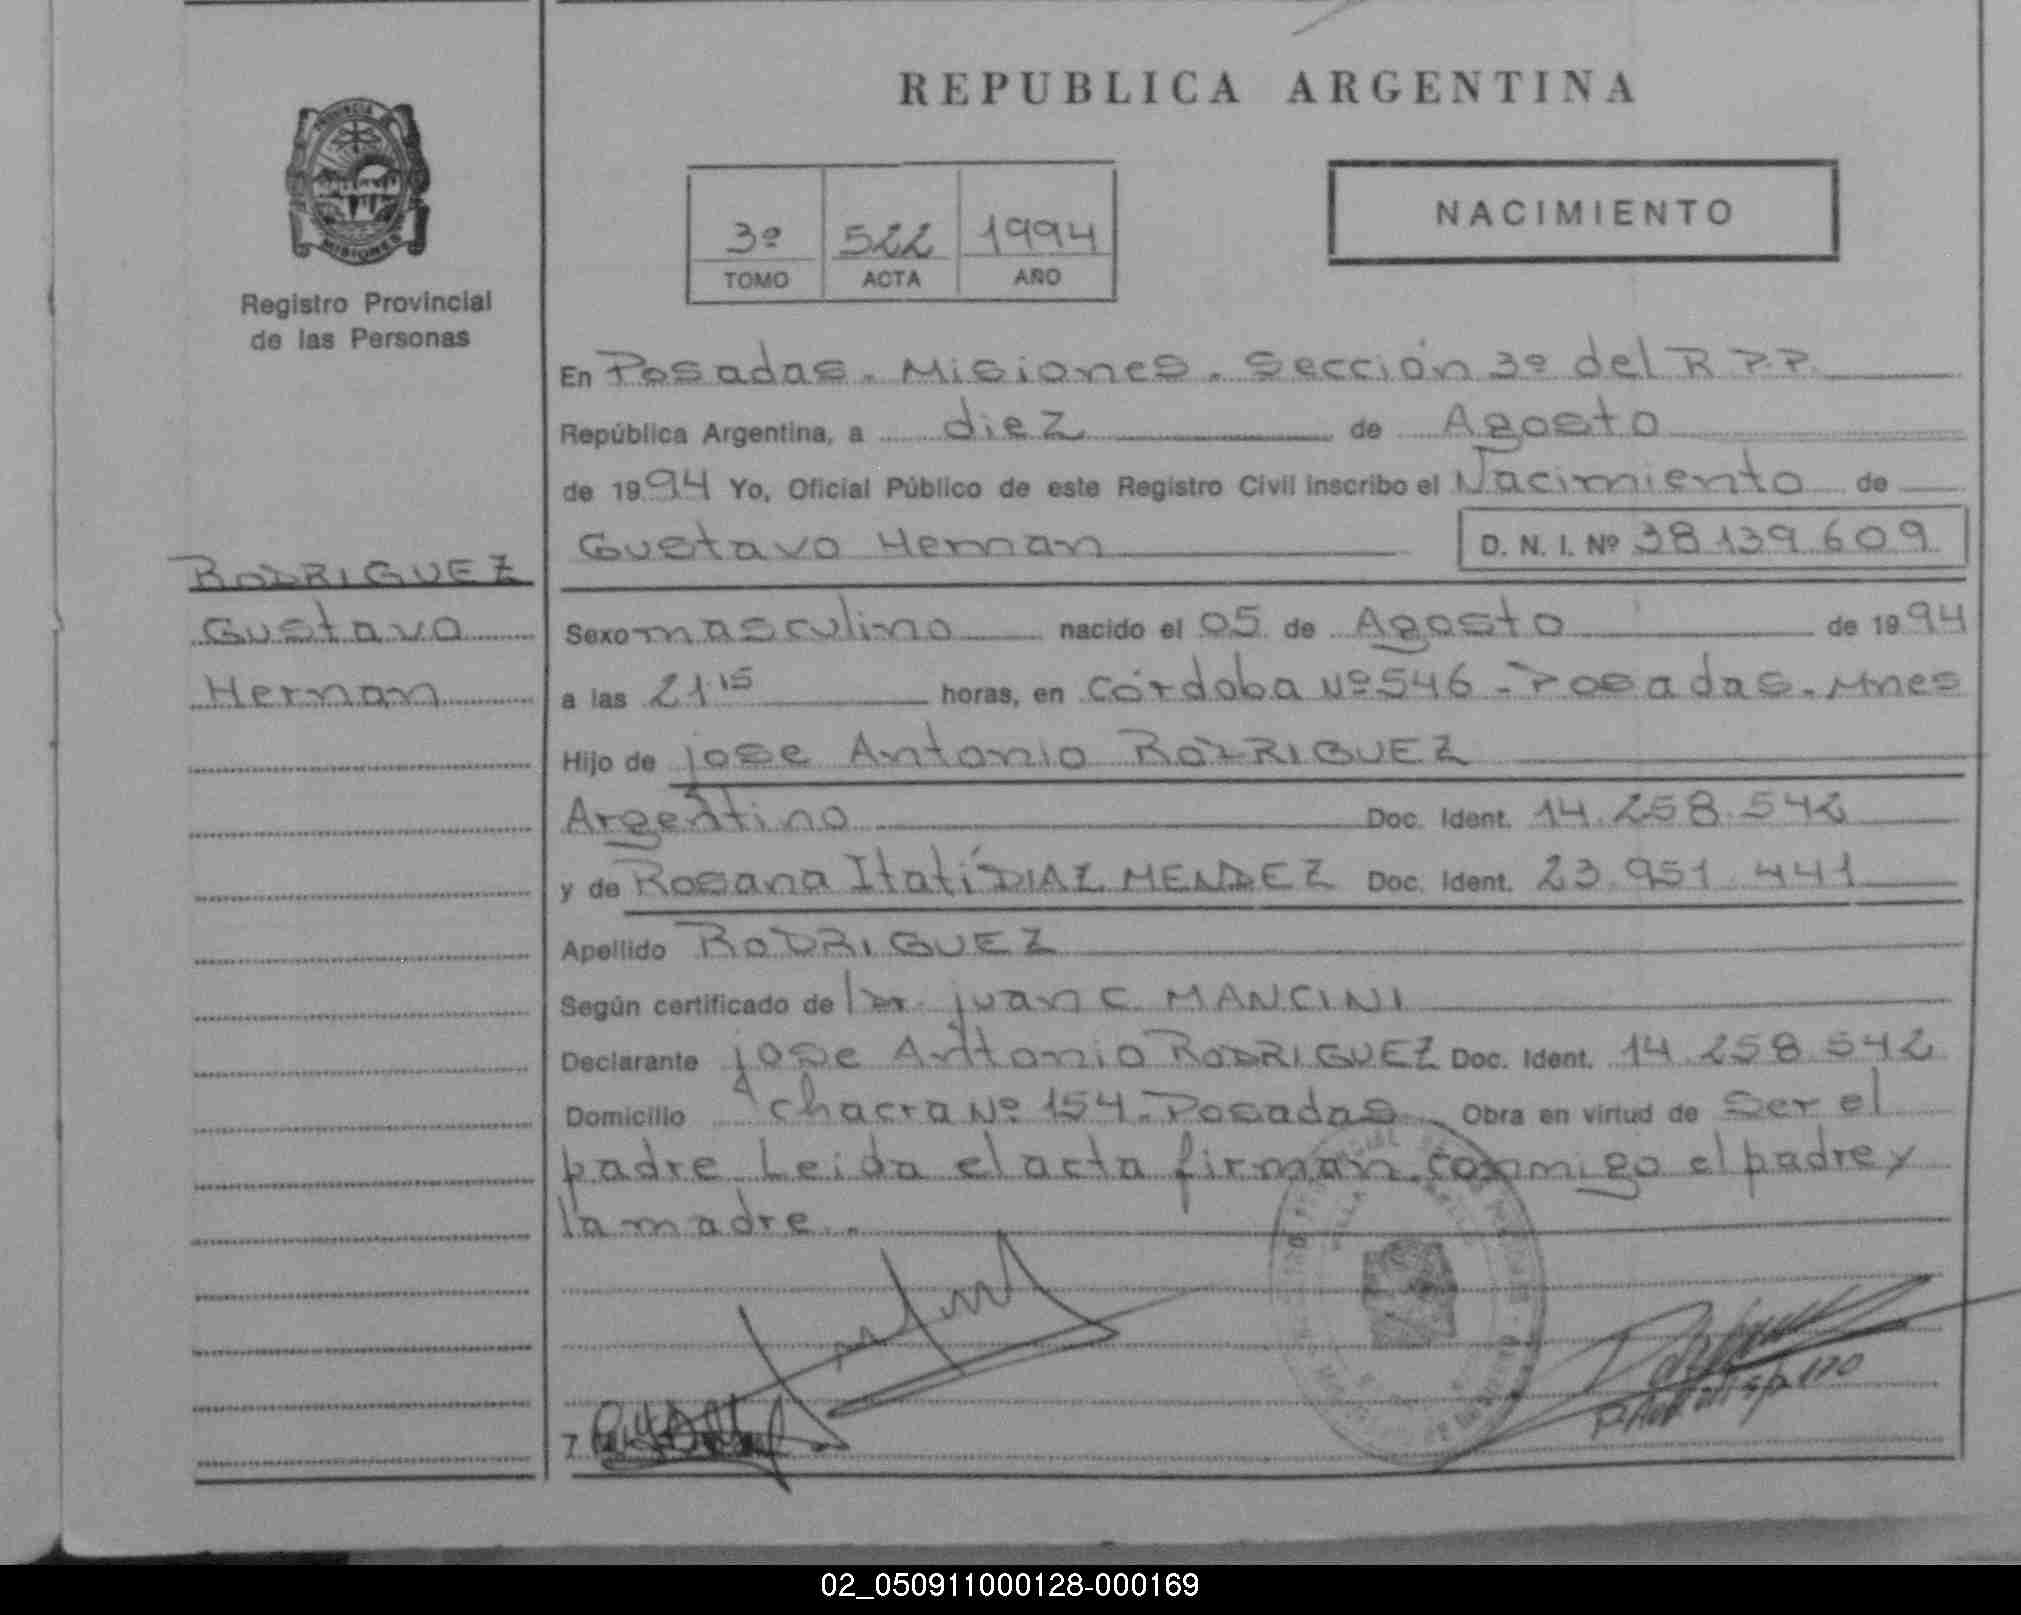 REPUBLICA ARGENTINA
PROVINCIA DE
MISIONES
Registro Provincial
de las Personas
3º 522 1994
TOMO ACTA AÑO
NACIMIENTO
En Posadas. Misiones. Sección 3º del R.P.P.
República Argentina, a diez de Agosto
de 1994 Yo, Oficial Público de este Registro Civil inscribo el Nacimiento de
Gustavo Hernan D. N. I. Nº 38.139.609
RODRIGUEZ
Gustavo
Hernan
Sexo masculino nacido el 05 de Agosto de 1994
a las 21 15 horas, en Córdoba Nº 546 - Posadas. Mnes
Hijo de jose Antonio RODRIGUEZ
Argentino Doc. Ident. 14.258.542
y de Rosana Itatí DIAZ MENDEZ Doc. Ident. 23.951.441
Apellido RODRIGUEZ
Según certificado de Dr. juan C. MANCINI
Declarante jose Antonio RODRIGUEZ Doc. Ident. 14.258.542
Domicilio chacra Nº 154. Posadas Obra en virtud de Ser el
padre. Leida el acta firman conmigo el padre y
la madre.
7
02_050911000128-000169